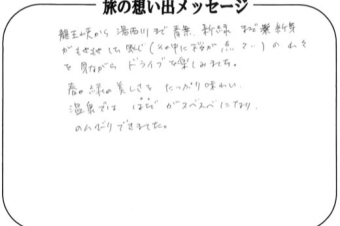 旅の想い出メッセージ
龍王峡から湯西川まで青葉、新緑、まだ新芽
がもせ地した感じ(その中に桜が点々)の山々
を見ながらドライブを楽しみました。
春の緑の美しさをたっぷり味わい、
温泉では、ばばがスベスベになり、
のんびりできました。